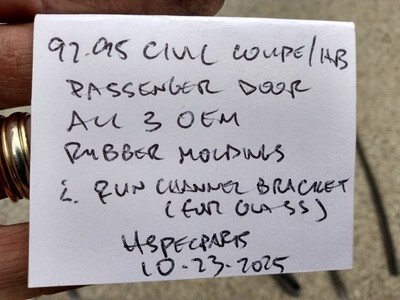 92-95 CIVIC COUPE/HB
PASSENGER DOOR
ALL 3 OEM
RUBBER MOLDINGS
& RUN CHANNEL BRACKET
(FOR GLASS)
HSPECPARTS
10-23-2025